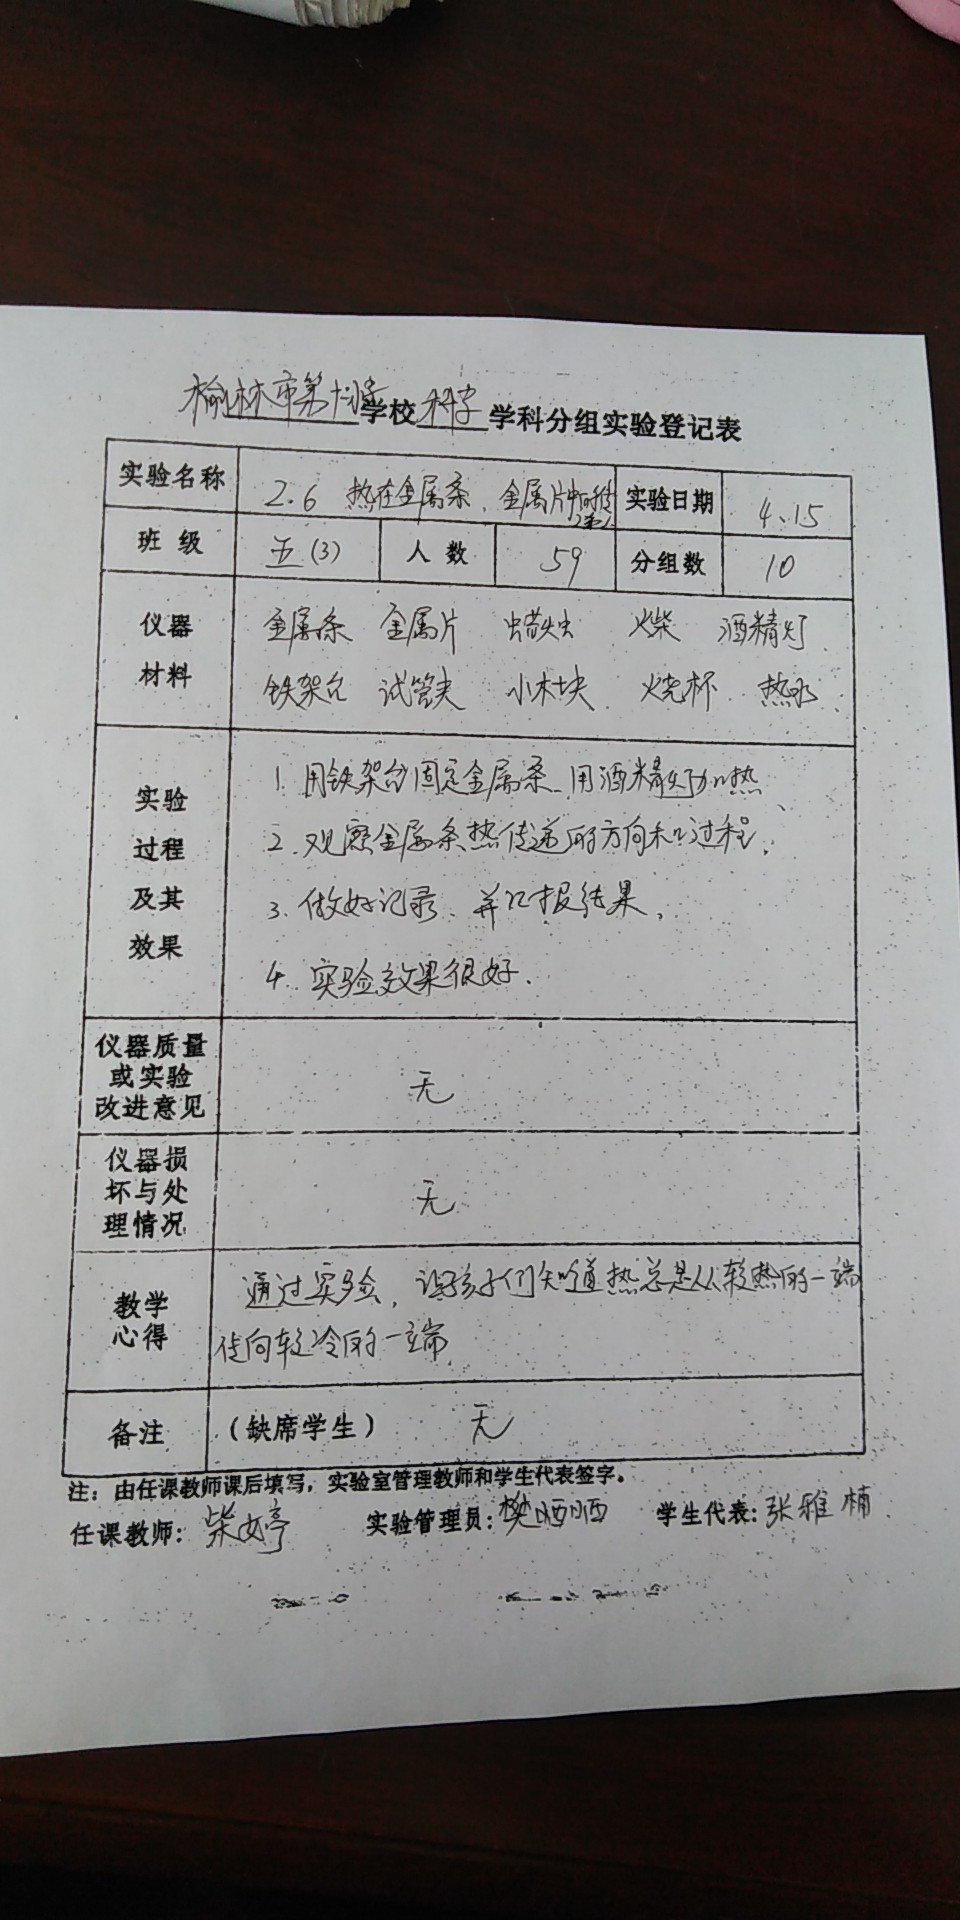 榆林市第十小学学校科学学科分组实验登记表
实验名称 2.6 热在金属条、金属片中的传递 实验日期 4.15
班级 五(3) 人数 59 分组数 10
仪器材料 金属条 金属片 蜡烛 火柴 酒精灯
铁架台 试管夹 小木块 烧杯 热水
实验过程及其效果
1. 用铁架台固定金属条、用酒精灯加热、
2. 观察金属条热传递的方向和过程.
3. 做好记录、并汇报结果.
4. 实验效果很好.
仪器质量
或实验
改进意见 无
仪器损
坏与处
理情况 无
教学心得 通过实验, 让孩子们知道热总是从较热的一端
传向较冷的一端
备注 (缺席学生) 无
注: 由任课教师课后填写, 实验室管理教师和学生代表签字。
任课教师: 柴婷 实验管理员: 樊晒晒 学生代表: 张雅楠